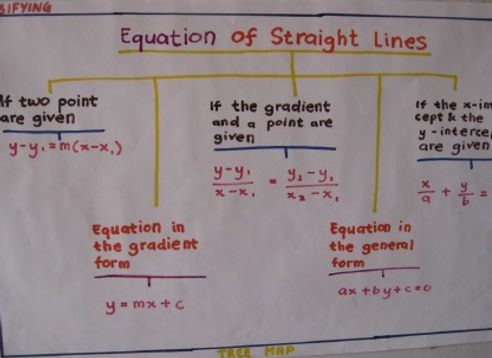 SIFYING
Equation of Straight Lines
If two point
are given
y-y₁ = m(x-x₁)
If the gradient
and a point are
given
y-y₁ / x-x₁ = y₂-y₁ / x₂-x₁
If the x-in
cept & the
y-intercep
are given
x/a + y/b =
Equation in
the gradient
form
y = mx + c
Equation in
the general
form
ax + by + c = 0
TREE MAP